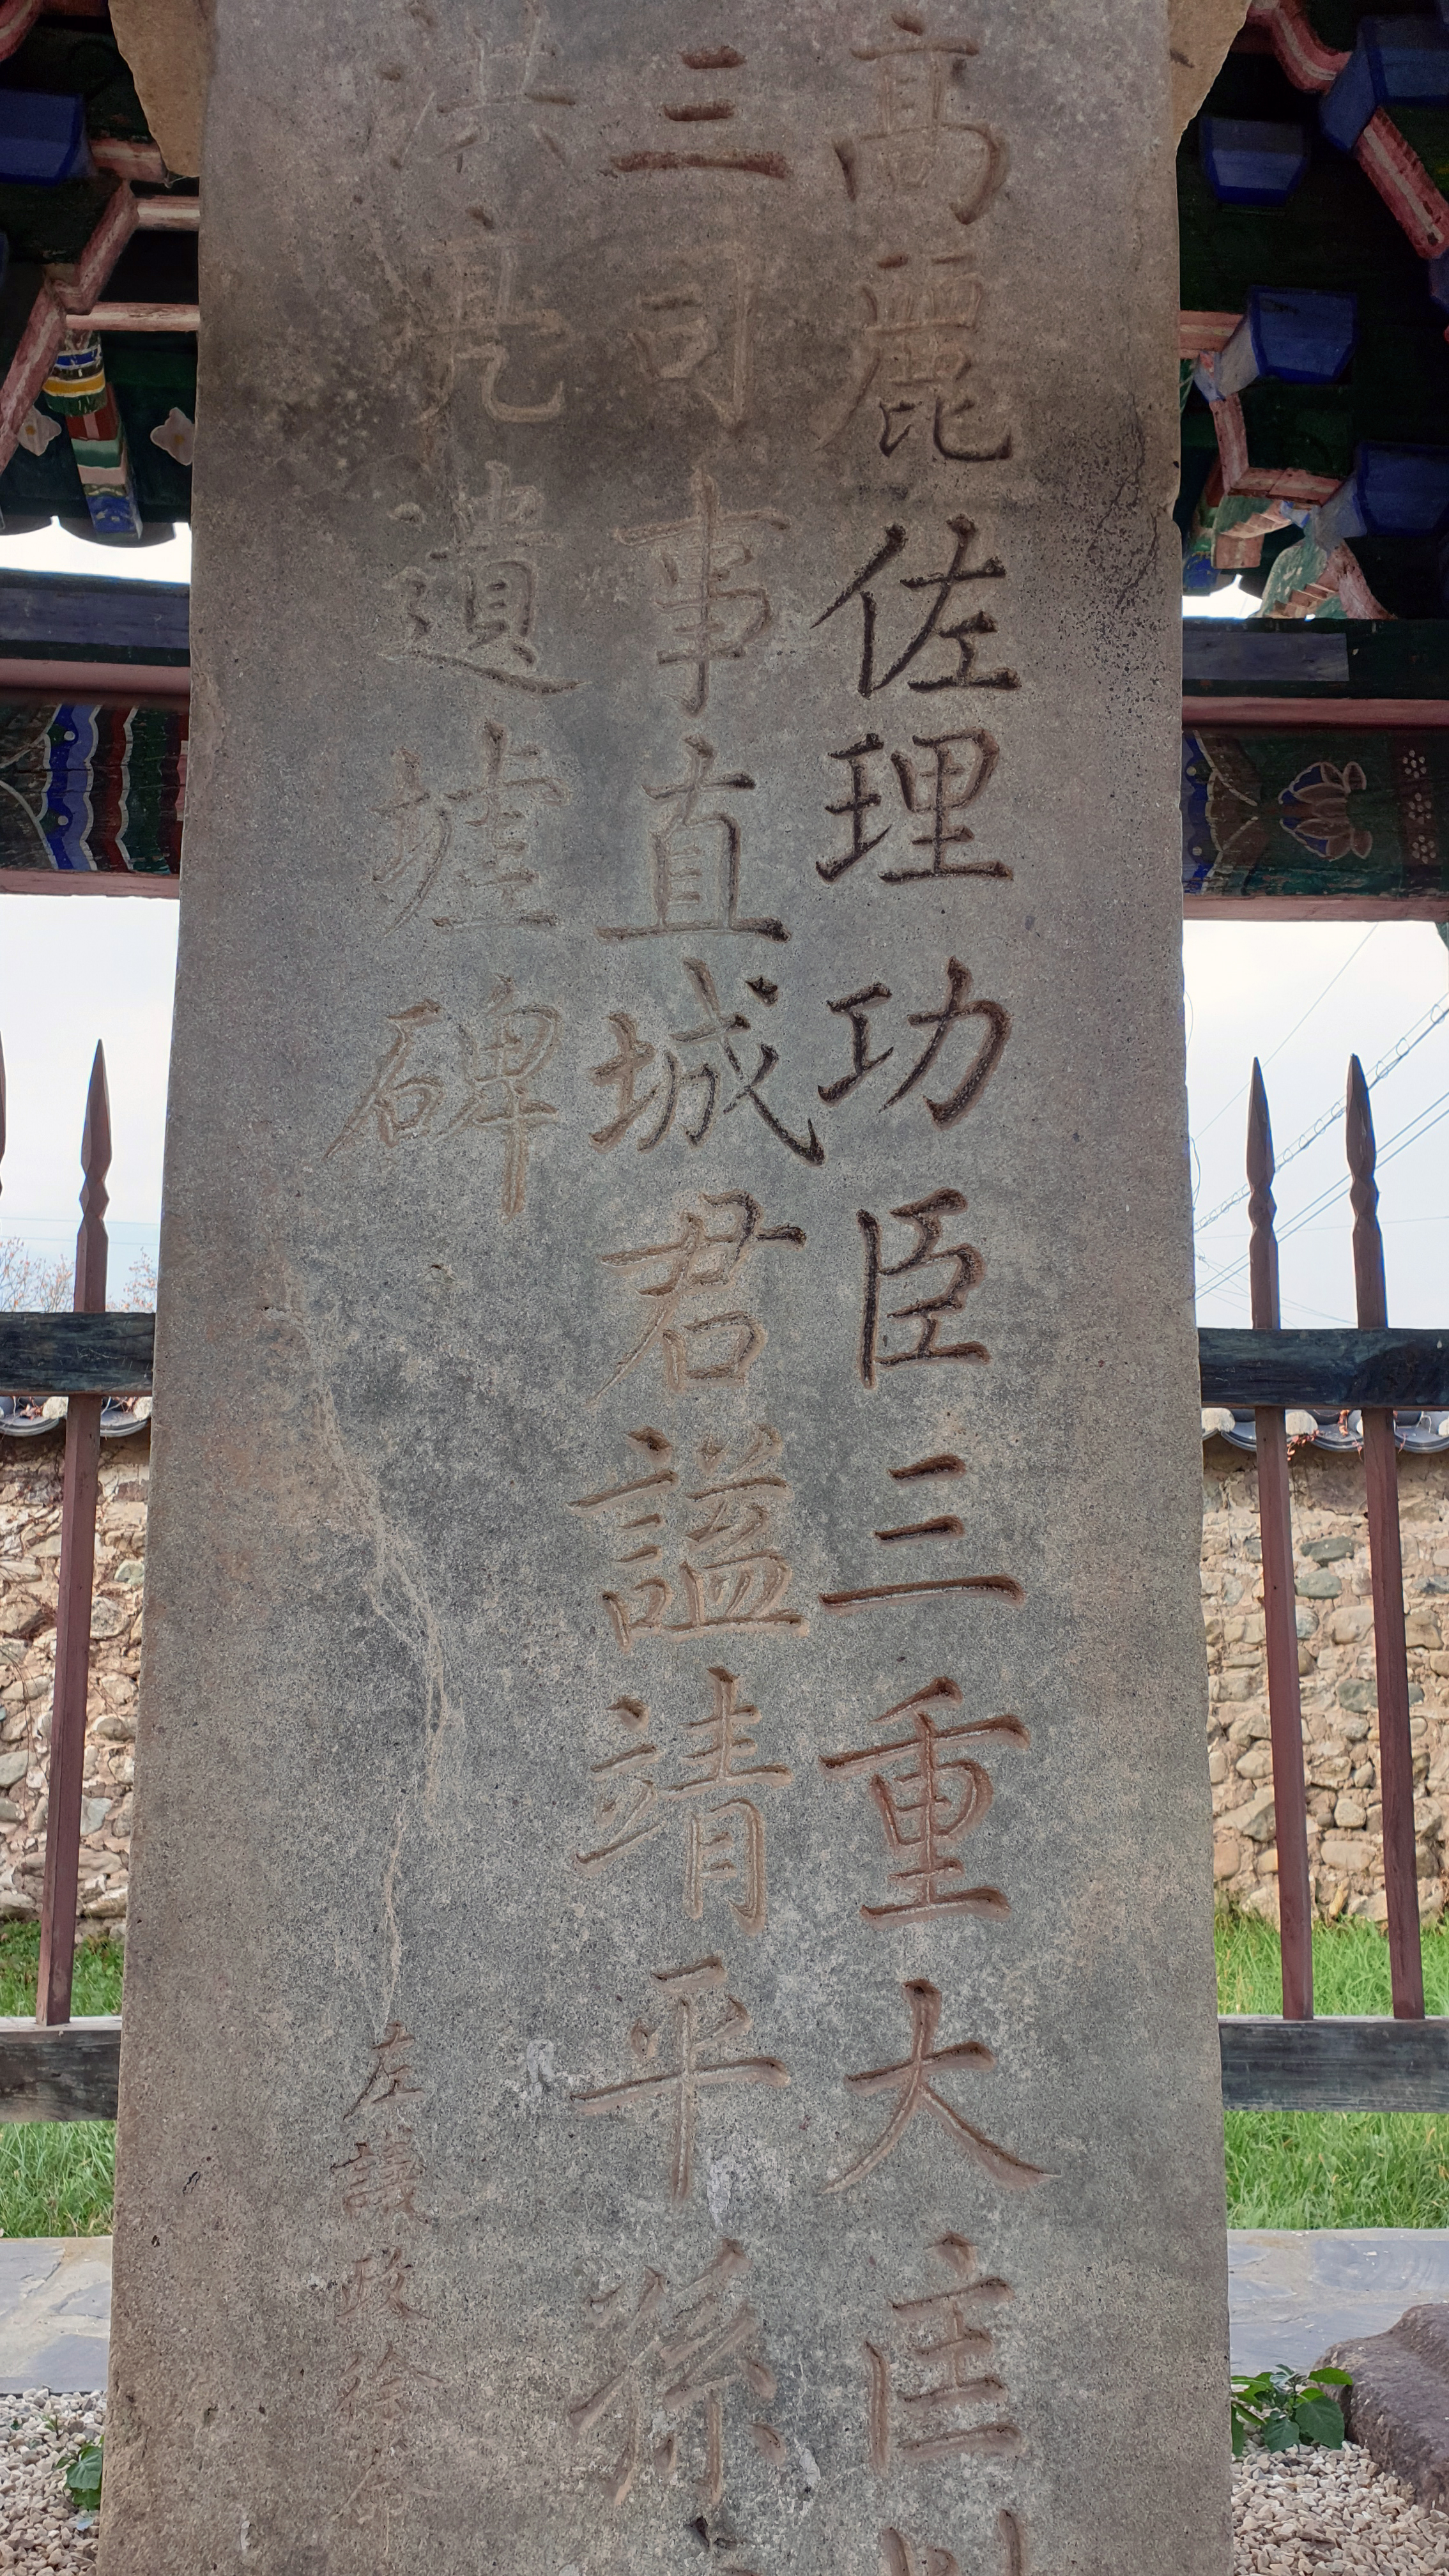 高麗佐理功臣三重大匡
三司事直城君謚靖平孫
洪亮遺墟碑
左議政徐命